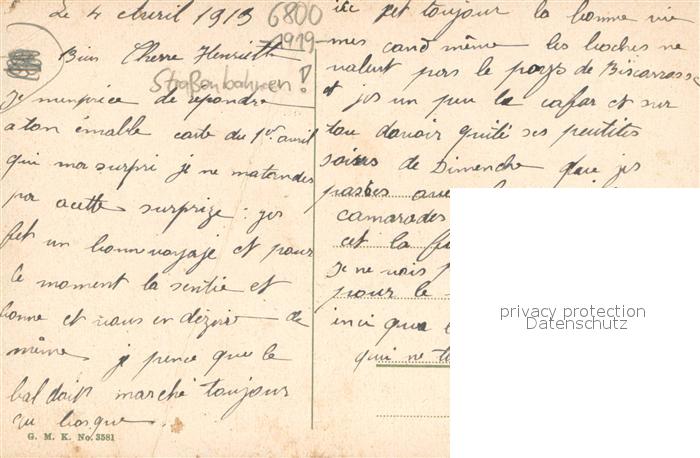 Le 4 Avril 1919 6800
1919
Bien Cherre Henriette
Straßenbahnen!
Je m'enprèce de repondre
a ton émable carte du 1er avril
qui ma surpri je ne matendes
pas a cette surprize : jes
fet un bonne voyaje et pour
le moment la sentié et
bonne et vous en dezire de
même je pence que le
bal doit marché toujours
au bosque
G. M. K. No. 3581
ici cet toujour la bonne vie
mes cand même les boches ne
valent pas le pays de Biscarrosse
et jes un peu le cafar et sur
tou davoir quité ses peutites
soires de Dimenche que jes
passées avec
camarades
cet la
Je ne vois
pour le
inci que
qui ne
privacy protection
Datenschutz